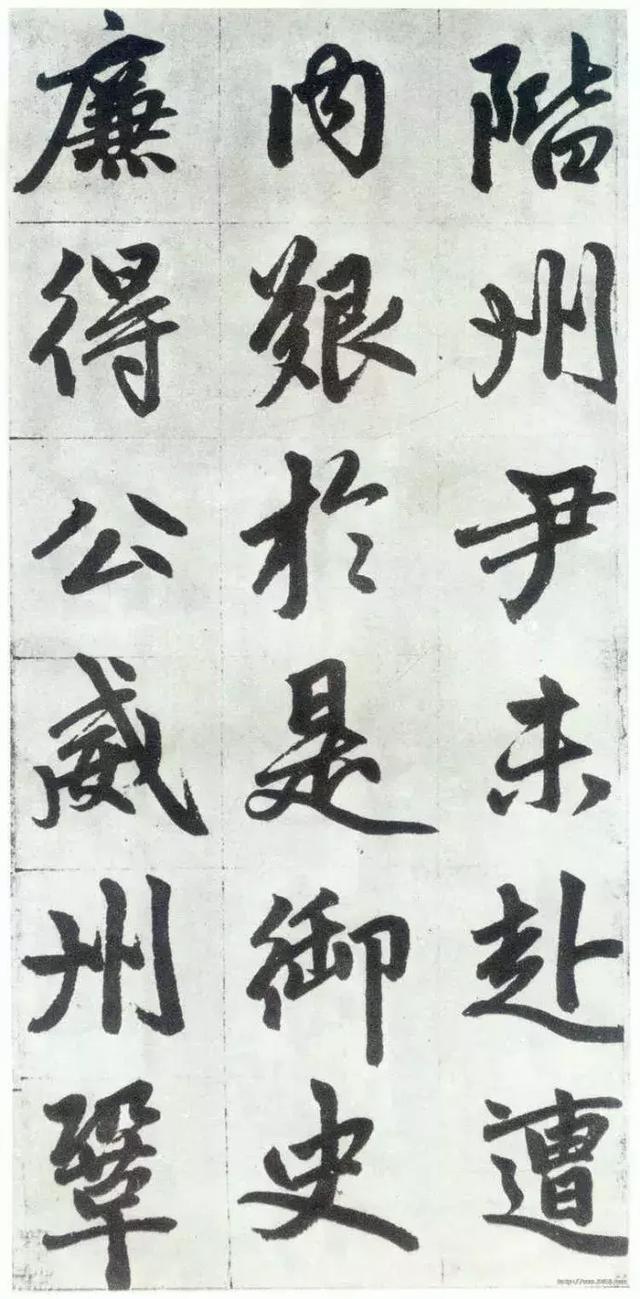 階州尹未赴遭
内艱於是御史
廉得公威州鞏